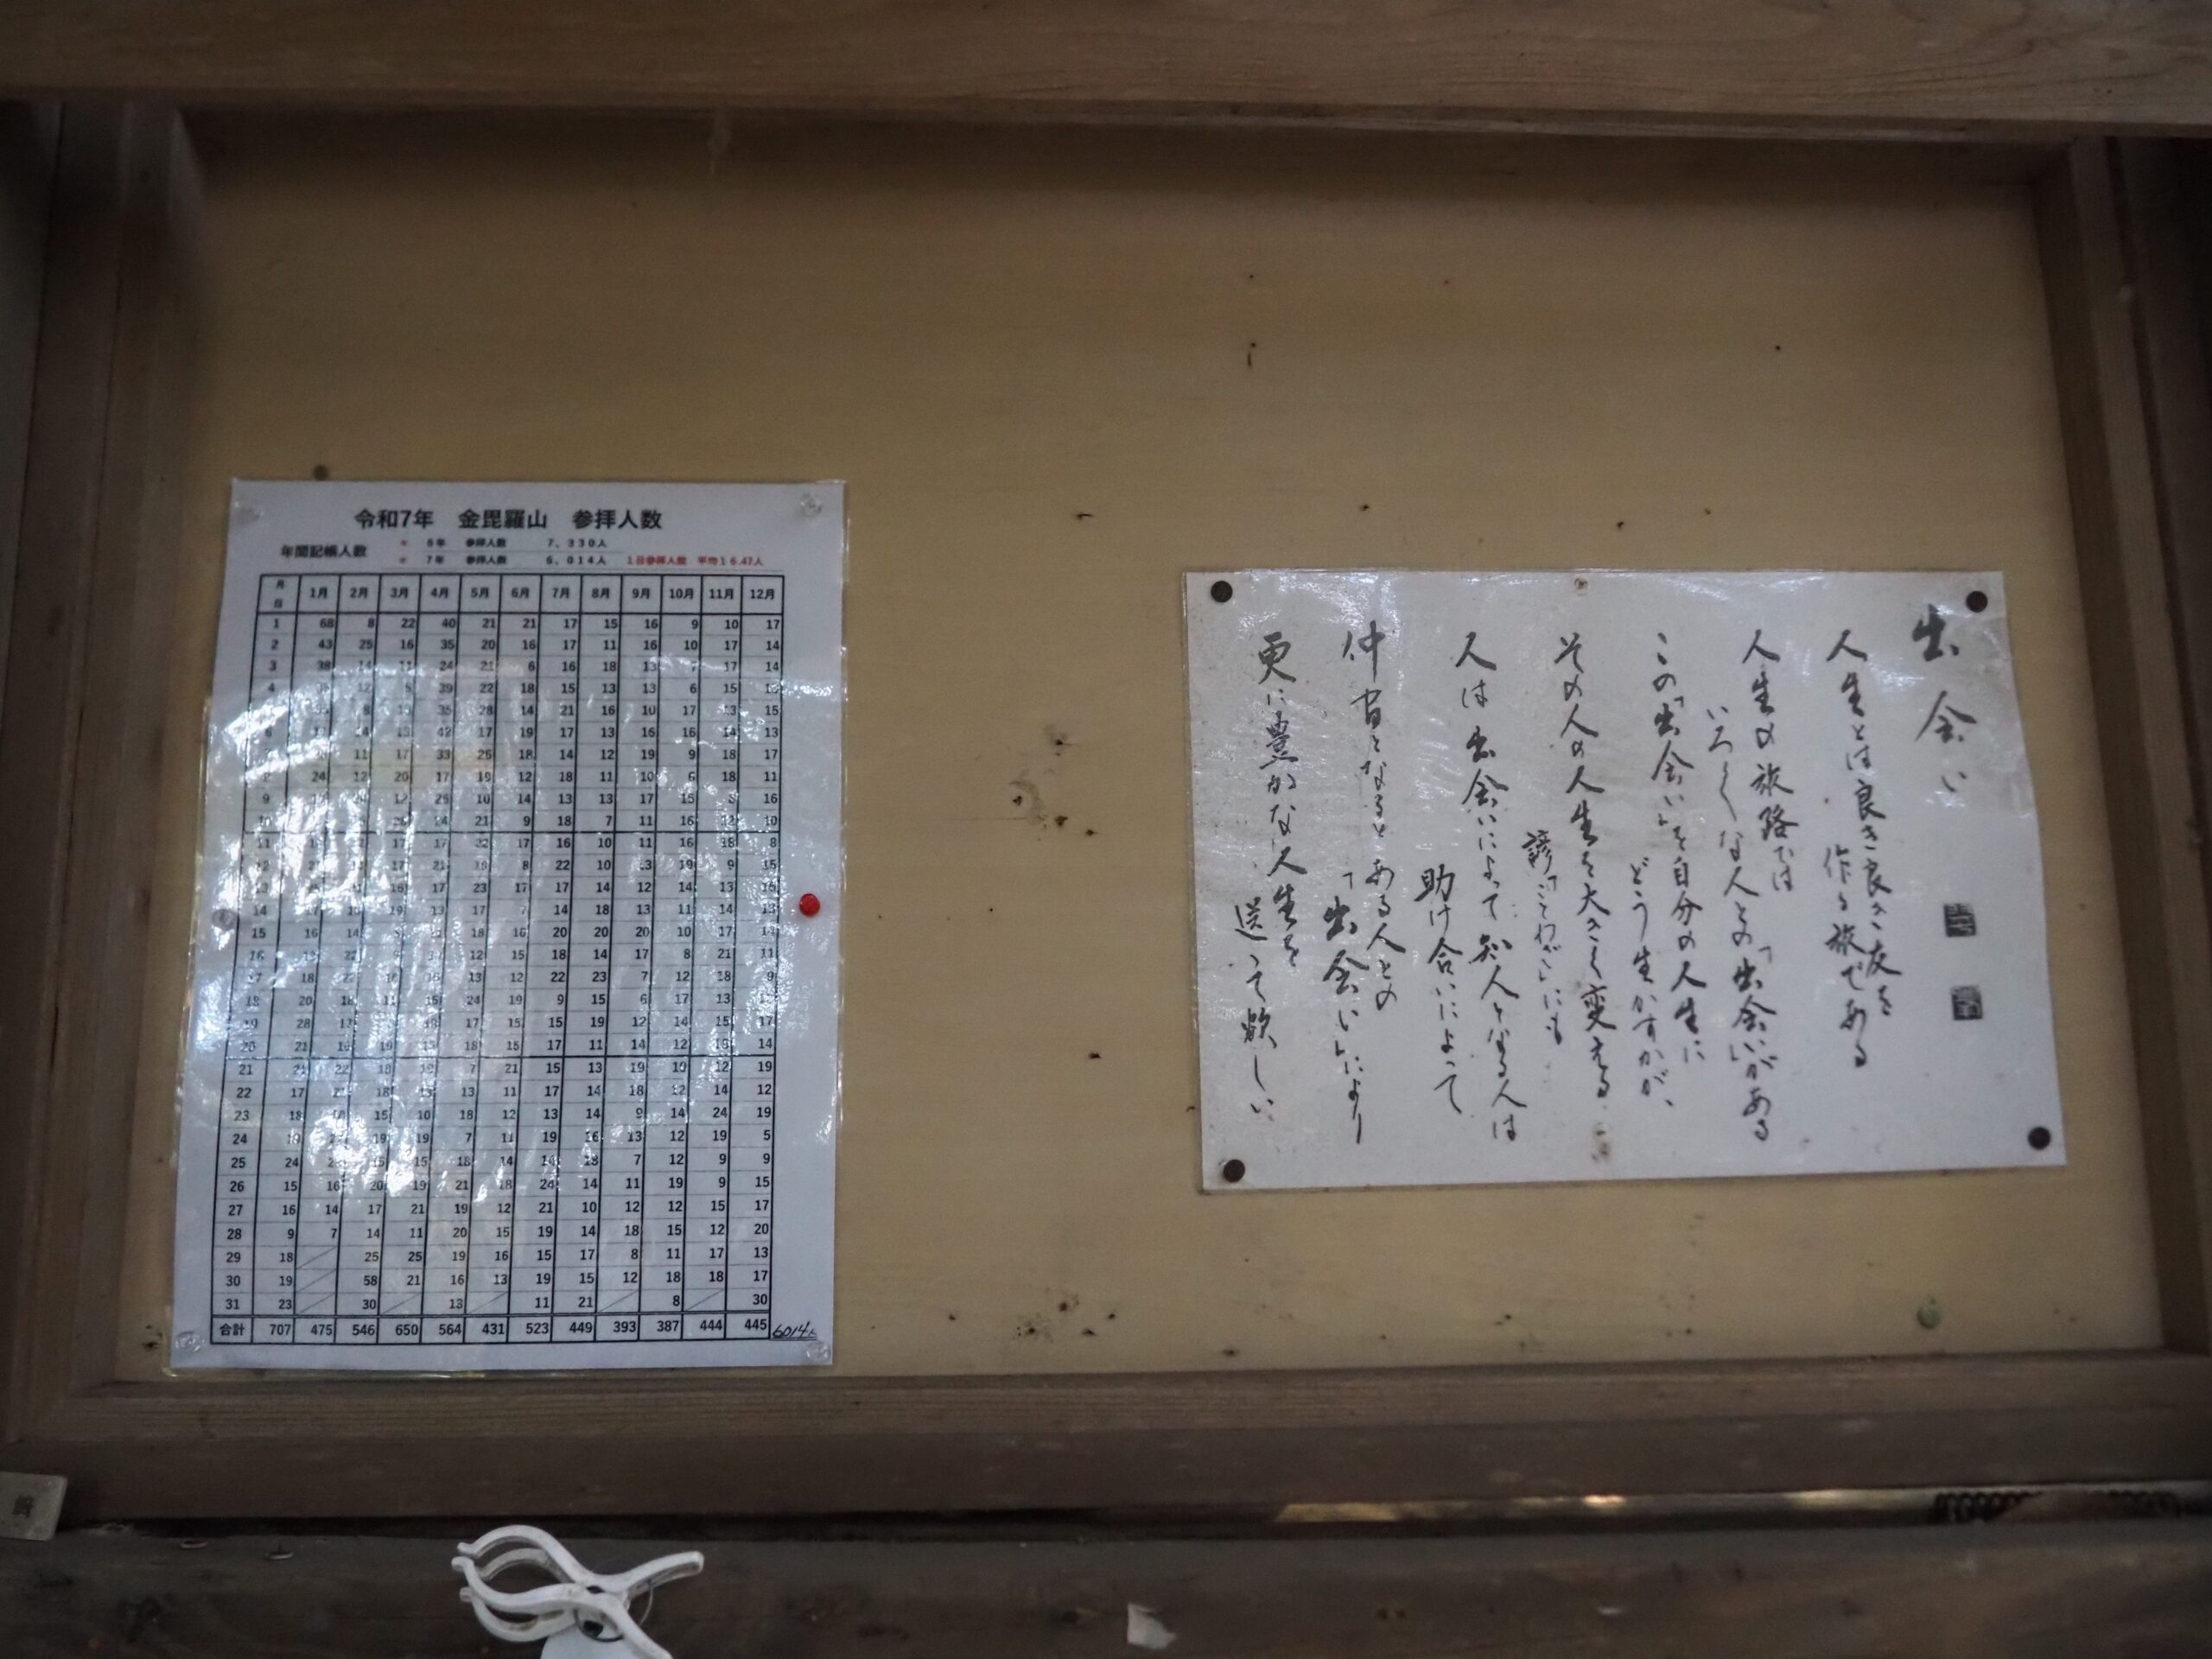 令和7年 金毘羅山 参拝人数
年間記帳人数
* 6年 参拝人数 7、330人
* 7年 参拝人数 6、014人 1日参拝人数 平均16.47人
月 日 1月 2月 3月 4月 5月 6月 7月 8月 9月 10月 11月 12月
1 68 8 22 40 21 21 17 15 16 9 10 17
2 43 25 16 35 20 16 17 11 16 10 17 14
3 38 14 11 24 21 6 16 18 13 7 17 14
4 12 39 22 18 15 13 13 6 15
5 8 35 28 14 21 16 10 17 13 15
6 42 17 19 17 13 16 16 14 13
7 11 17 33 25 18 14 12 19 9 18 17
8 24 12 20 17 19 12 18 11 10 6 18 11
9 12 25 10 14 13 13 17 15 16
10 24 21 9 18 7 11 16 10
11 17 17 22 17 16 10 11 16 18 8
12 17 21 19 8 22 10 13 19 9 15
13 16 17 23 17 17 14 12 14 13 16
14 19 13 17 7 14 18 13 11 14 13
15 16 14 18 16 20 20 20 10 17
16 22 12 15 18 14 17 8 21 11
17 18 22 13 12 22 23 7 12 18 9
18 20 24 19 9 15 6 17 13
19 28 17 15 15 19 12 14 15 17
20 21 18 15 17 11 14 12 19 14
21 22 7 21 15 13 19 19 12 19
22 17 13 11 17 14 18 12 14 12
23 18 15 10 18 12 13 14 9 14 24 19
24 19 19 7 11 19 16 13 12 19 5
25 24 15 18 14 18 7 12 9 9
26 15 16 20 19 21 18 24 14 11 19 9 15
27 16 14 17 21 19 12 21 10 12 12 15 17
28 9 7 14 11 20 15 19 14 18 15 12 20
29 18 25 25 19 16 15 17 8 11 17 13
30 19 58 21 16 13 19 15 12 18 18 17
31 23 30 13 11 21 8 30
合計 707 475 546 650 564 431 523 449 393 387 444 445 6014人
出会い
人生とは良き良き友を
作る旅である
人生の旅路では
いろ〱な人との「出会い」がある
この「出会い」を自分の人生に
どう生かすかが、
その人の人生を大きく変える
諺「ことわざ」にも
人は出会いによって知人となる人は
助け合いによって
仲間となるとある人との
「出会い」により
更に豊かな人生を
送って欲しい